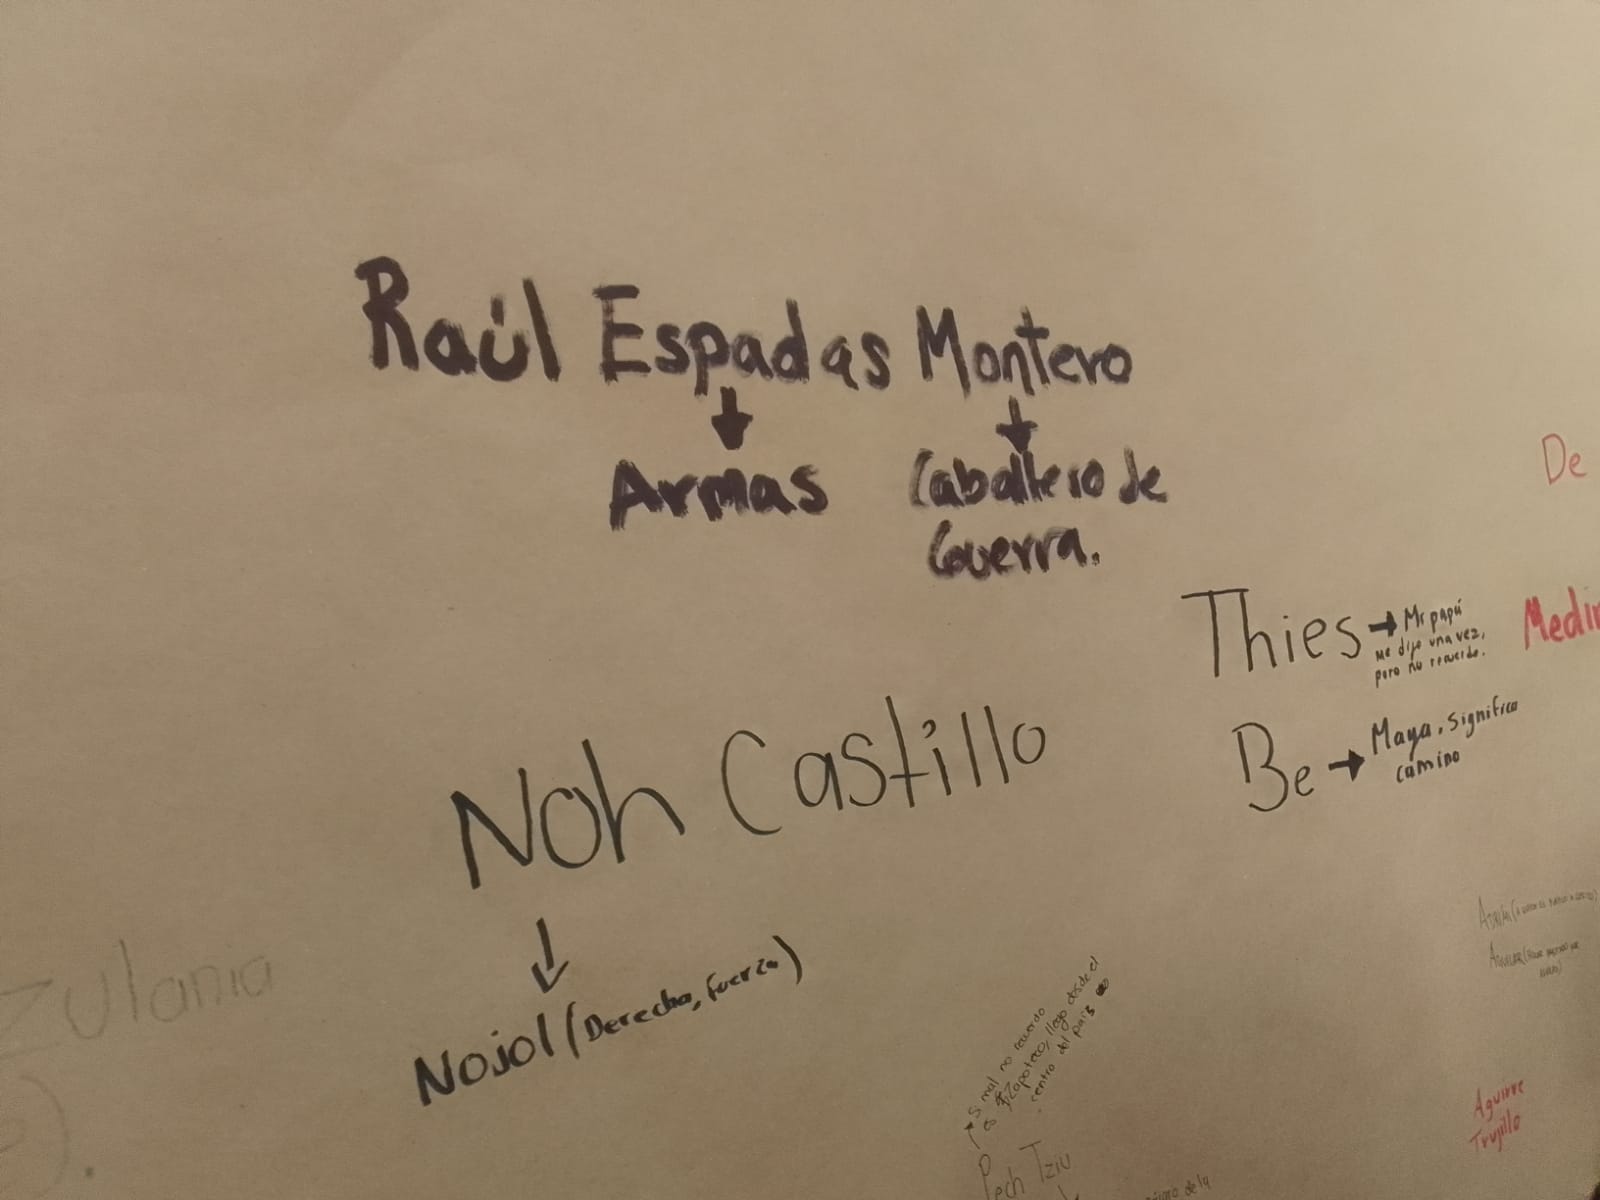 Raúl Espadas Montero
Armas
Caballero de
Guerra.
De
Thies → Mi papá
me dijo una vez,
pero no recuerdo.
Be → Maya, significa
camino
Noh Castillo
Nojol (Derecha, fuerza)
Zulania
Si mal no recuerdo
es Zapoteco, llego desde el
centro del país
Pech Tziu
Aguirre
Trujillo